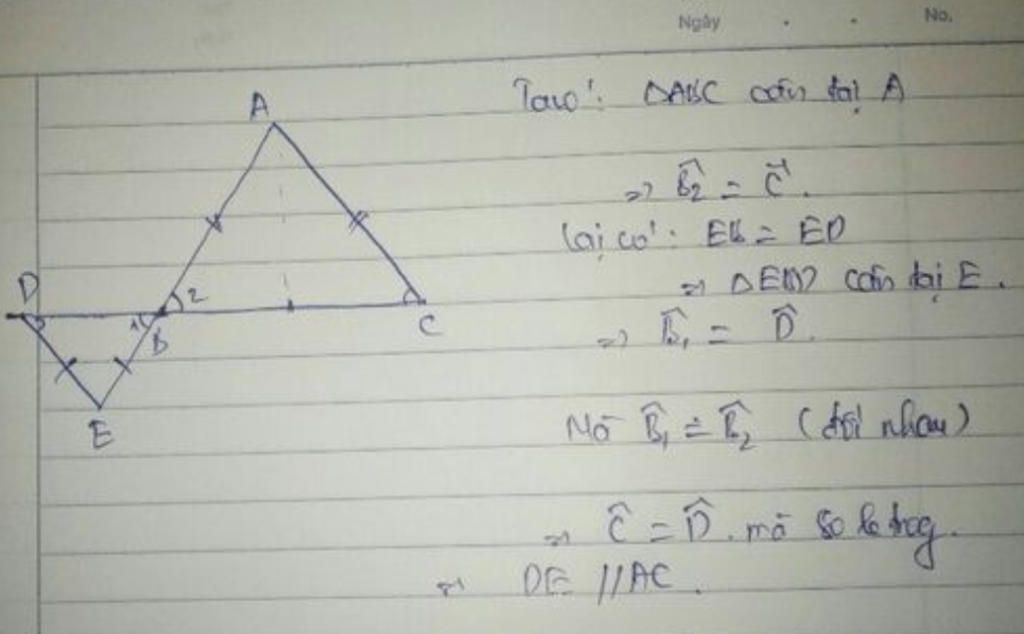 Ngày No.
A
Ta có: ΔABC cân tại A
=> B̂₂ = Ĉ.
Lại có: EB = ED
=> ΔEBD cân tại E.
=> B̂₁ = D̂.
D 1 2
B C
E
Mà B̂₁ = B̂₂ (đối nhau)
=> Ĉ = D̂. mà so le trog.
=> DE // AC.